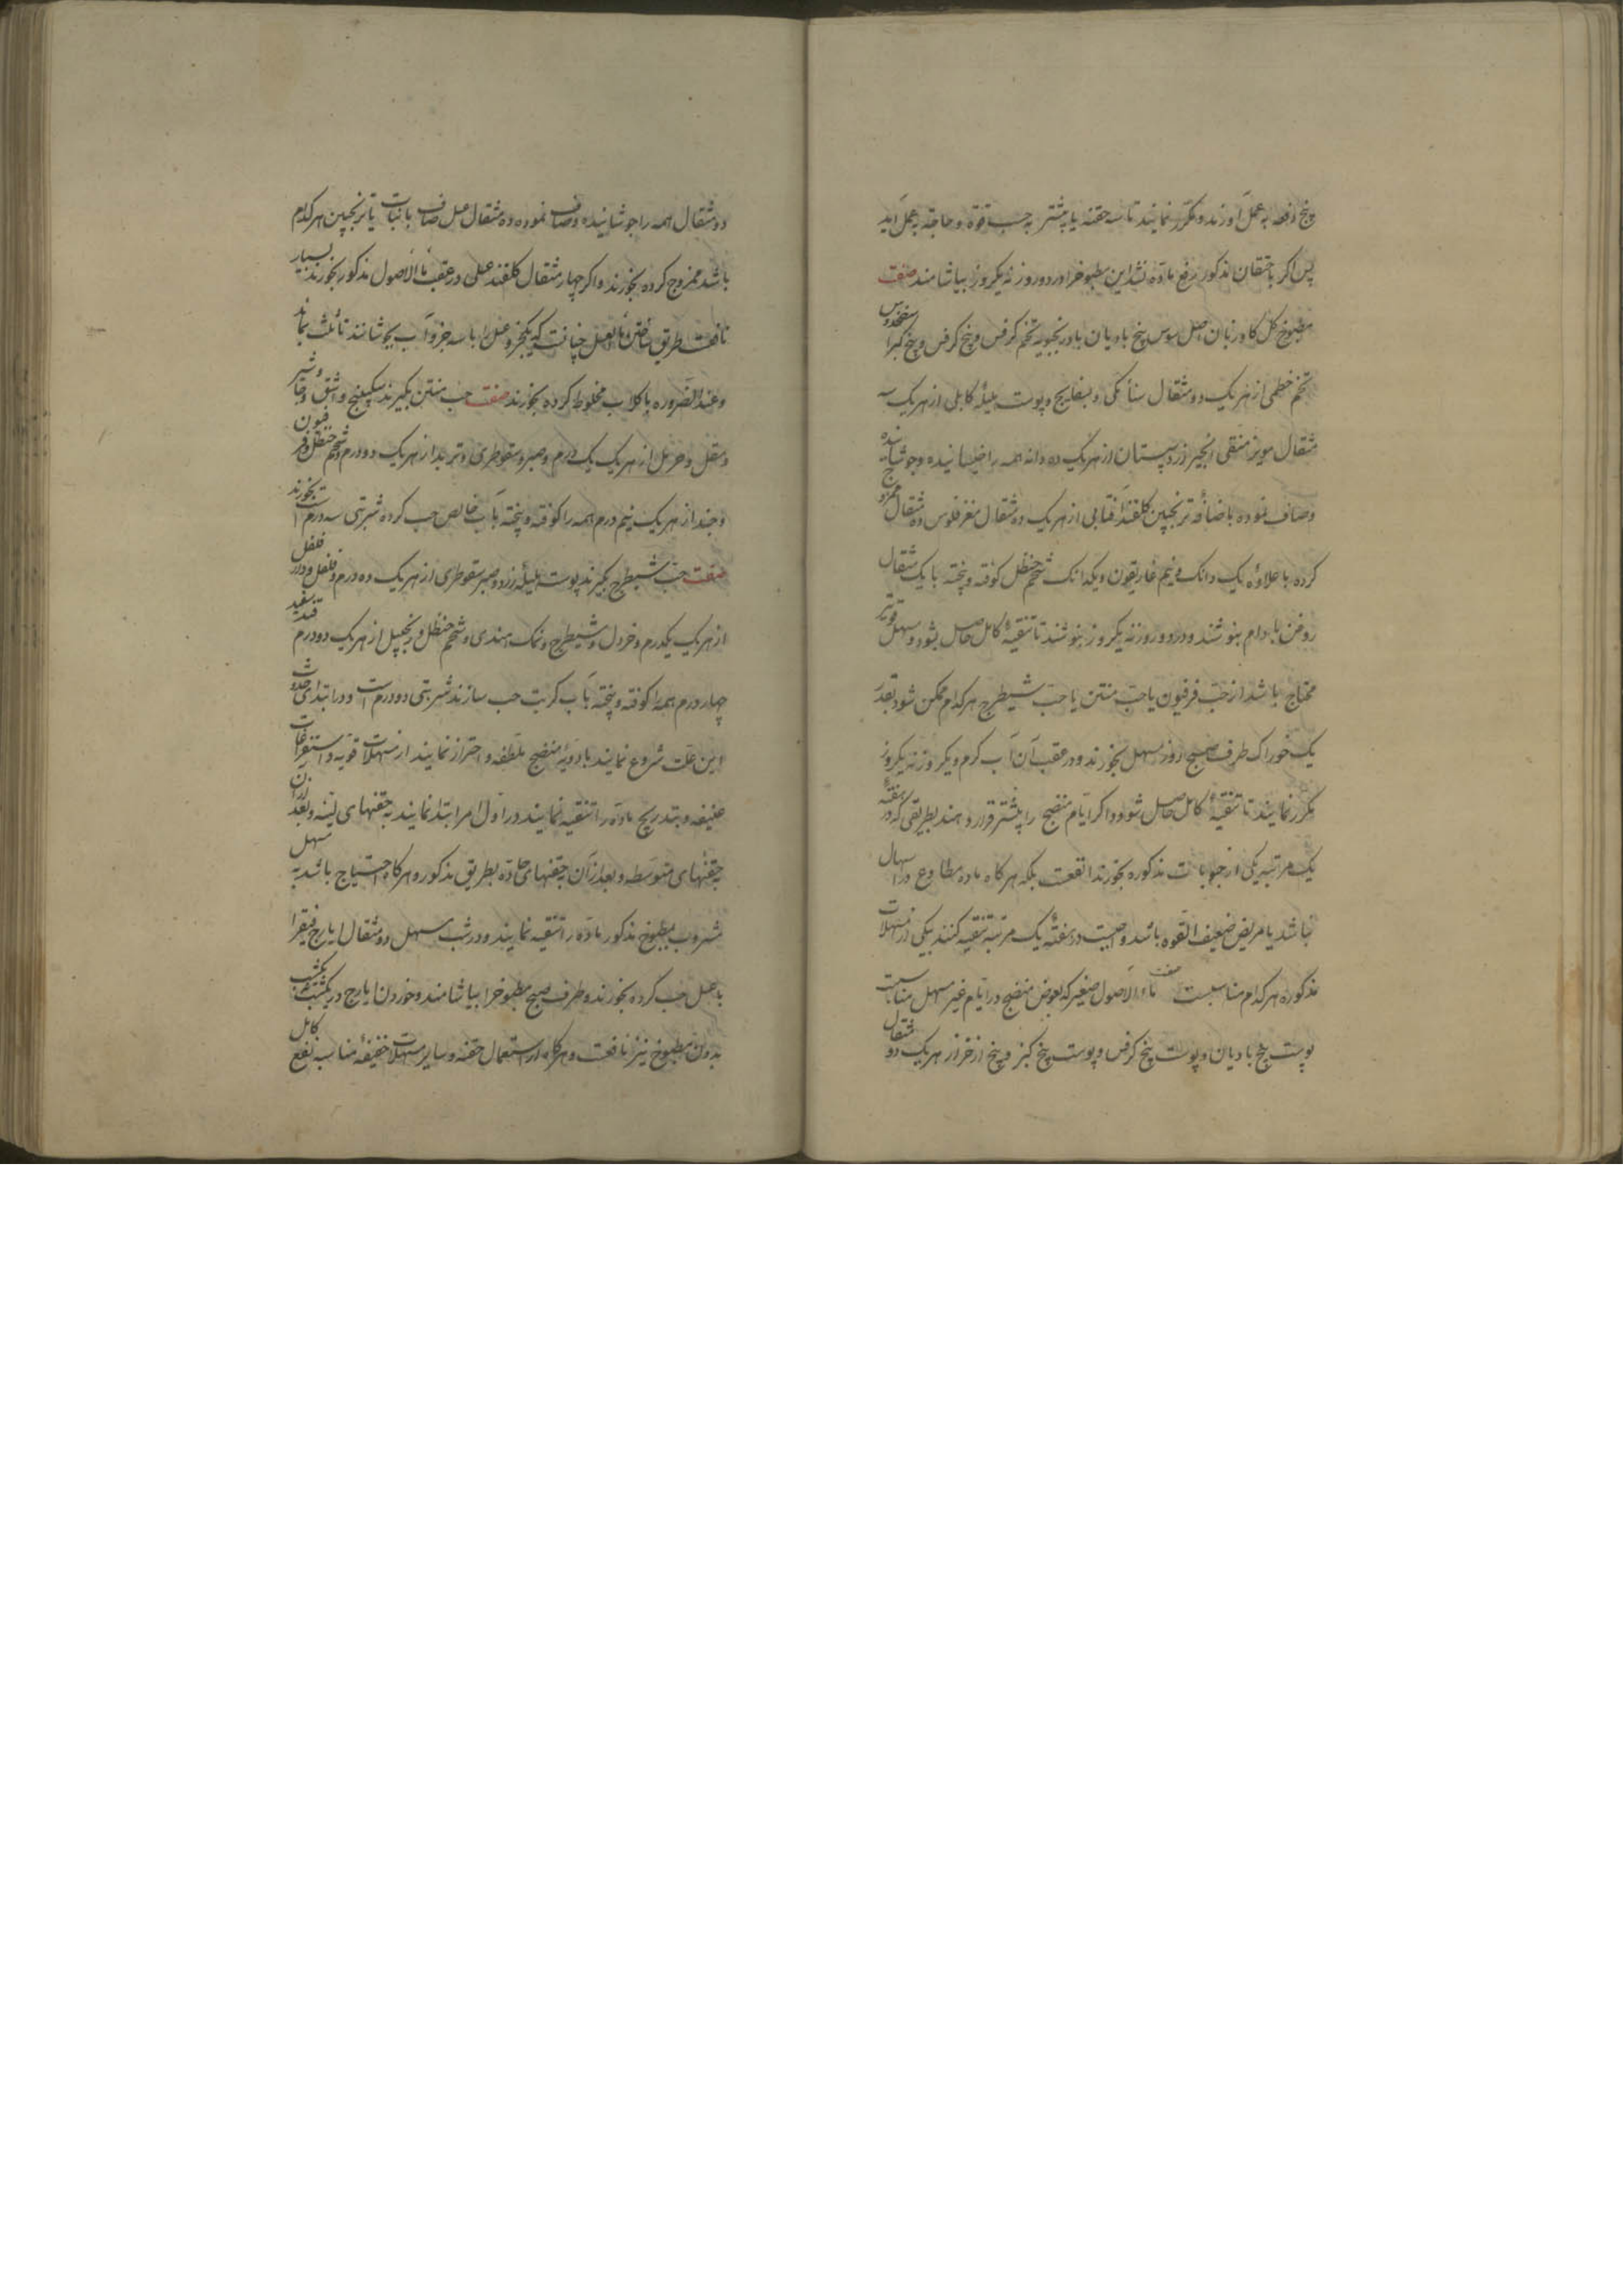 و پنج دفعه به عمل آورند و مکرّر نمایند تا سه حقنه یا بیشتر به حسب قوة و حاجة به عمل آید
پس اکر باحتقان مذکور رفع ماده نشد این مطبوخرا در دو روز نه یکروز بیاشامند صفت
مطبوخ کل کاوزبان اصل سوس بیخ بادیان بادرنجبویه تخم کرفس و بیخ کرفس و بیخ کبر اسطخودوس
تخم خطمی از هریک دو مثقال سنأ مکی و بسفایج و پوست هلیلهٔ کابلی از هریک سه
مثقال مویز منقی انجیر زرد سپستان از هریک ده دانه همه را خیسانیده و جوشانیده
و صاف نموده باضافهٔ ترنجبین کلقند آفتابی از هریک ده مثقال مغز فلوس ده مثقال ممزوج
کرده با علاوهٔ یک دانک و نیم غاریقون و یکدانک شحم حنظل کوفته و پخته با یک مثقال
روغن بادام بنوشند و در دو روز نه یکروز بنوشند تا تنقیهٔ کامل حاصل بشود و مسهل قویتر
محتاج باشد از حبّ فرفیون یا حبّ منتن یا حبّ شیطرج هرکدام ممکن شود بقدر
یک خوراک طرف صبح روز مسهل بخورند و در عقب آن آب کرم و یکروز نه یکروز
مکرر نمایند تا تنقیهٔ کامل حاصل شود و اکر ایّام منضج را بیشتر قرار دهند بطریقی که در هفتهٔ
یک مرتبه یکی از حبوبات مذکوره بخورند انفعست بلکه هرکاه ماده مطاوع در اسهال
نباشد یا مریض ضعیف القوه باشد واجبست در هفتهٔ یک مرتبه تنقیه کنند بیکی از مسهلات
مذکوره هرکدام مناسبست صفت ماءالاصول صغیر که بعوض منضج در ایّام غیر مسهل مناسبست
پوست بیخ بادیان و پوست بیخ کرفس و پوست بیخ کبر و بیخ اذخر از هریک دو مثقال
دو مثقال همه را جوشانیده و صاف نموده ده مثقال عسل صاف یا نبات یا ترنجبین هرکدام
باشد ممزوج کرده بخورند و اکر چهار مثقال کلقند عسلی در عقب ماءالاصول مذکور بخورند بسیار
نافعست طریق ساختن ماءالعسل چنانست که یکجزو عسل را با سه جزو آب بجوشانند تا ثلث بماند
و عندالضروره با کلاب مخلوط کرده بخورند صفت حب منتن بکیرند سکبینج و اشق و جاوشیر
و مقل و حرمل از هریک یک درم و صبر سقوطری و تربد از هریک دو درم و شحم حنظل و فرفیون
و جند از هریک نیم درم همه را کوفته و پخته بآب خالص حب کرده شربتی سه درم است بخورند
صفت حبّ شیطرج بکیرند پوست هلیلهٔ زرد و صبر سقوطری از هریک ده درم و فلفل و دار فلفل
از هریک یکدرم و خردل و شیطرج و نمک هندی و شحم حنظل و زنجبیل از هریک دو درم قند سفید
چهار درم همه را کوفته و پخته بآب کرسب حب سازند شربتی دو درم است و در ابتدای حدوث
این علّت شروع نمایند بادویهٔ منضج ملطّفه و احتراز نمایند از مسهلات قویّه و استفراغات
عنیفه و بتدریج ماده را تنقیه نمایند و در اول امر ابتدا نمایند به حقنهای لیّنه و بعد از آن
به حقنهای متوسّطه و بعد از آن به حقنهای حادّه بطریق مذکور و هرکاه احتیاج باشد به مسهل
مشروب بمطبوخ مذکور ماده را تنقیه نمایند و در شب مسهل دو مثقال ایارج فیقرا
با عسل حب کرده بخورند و طرف صبح مطبوخرا بیاشامند و خوردن ایارج در یکشب نه یکشب
بدون مطبوخ نیز نافعست و هرکاه از استعمال حقنه و سایر مسهلات خفیفهٔ مناسبه نفع کامل